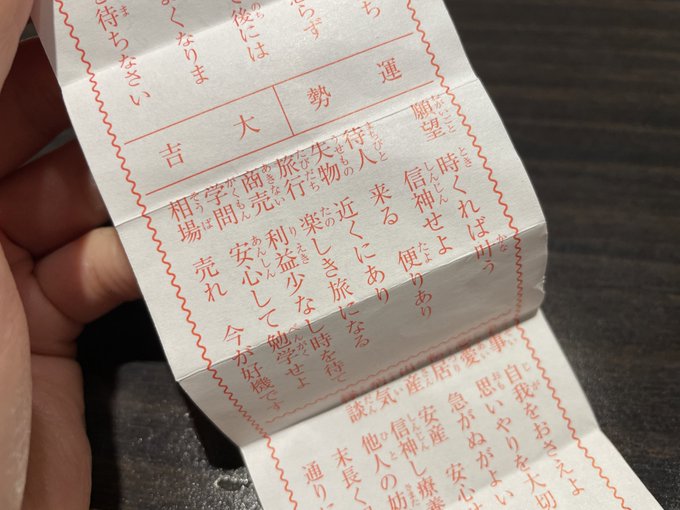 らず
て後には
よくなりま
待ちなさい
運勢
大吉
願望 時くれば叶う
信神せよ
待人 来る 便りあり
失物 近くにあり
旅行 楽しき旅になる
商売 利益少なし時を待て
学問 安心して勉学せよ
相場 売れ 今が好機です
事 自我をおさえよ
愛 思いやりを大切
居 急がぬがよい
産 安産 安心
気 信神し療養
談 他人の妨
末長く
通り